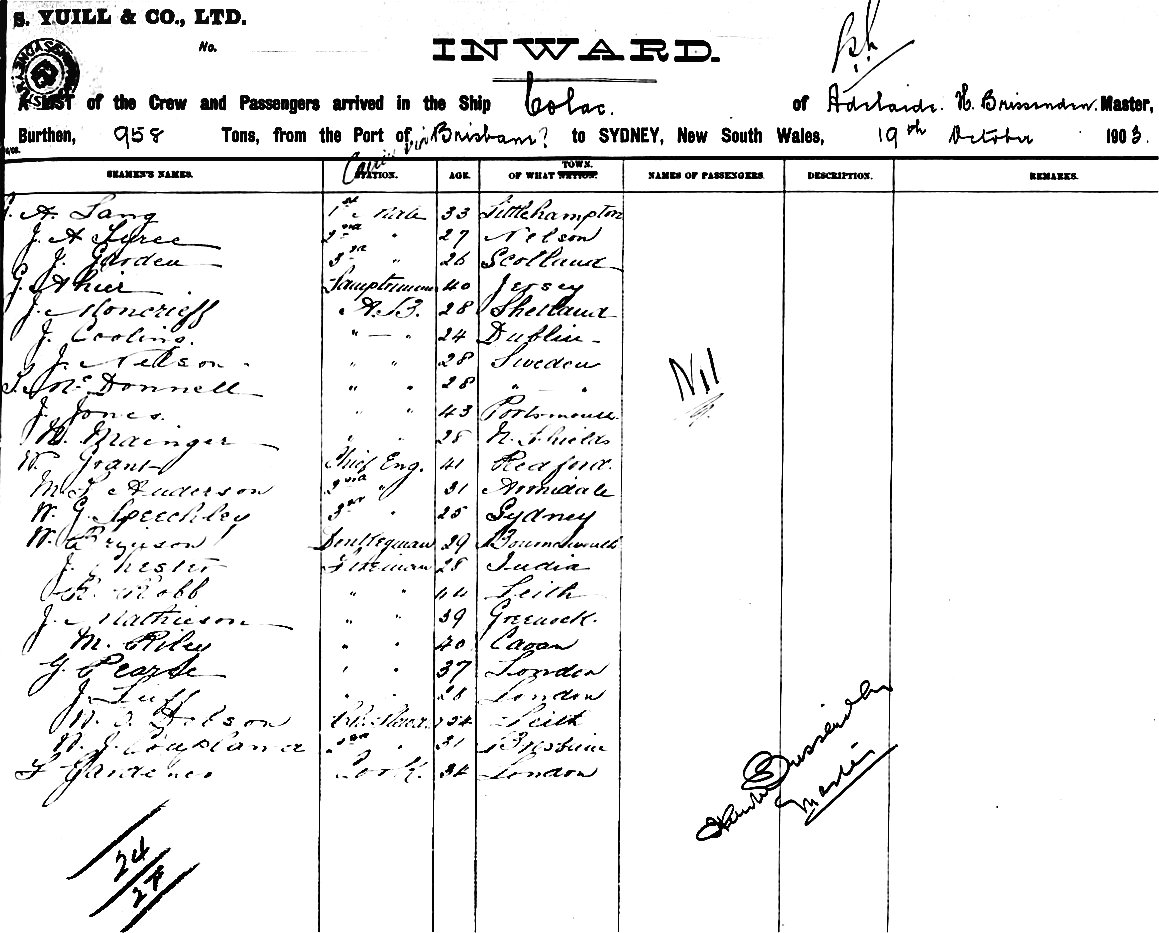 S. YUILL & CO., LTD.
No.
INWARD.
A LIST of the Crew and Passengers arrived in the Ship Colac. of Adelaide. H. Brissenden. Master,
Burthen, 958 Tons, from the Port of Cairns via Brisbane to SYDNEY, New South Wales, 19th October 1903.
SEAMEN'S NAMES. STATION. AGE. OF WHAT TOWN. NATION. NAMES OF PASSENGERS. DESCRIPTION. REMARKS.
A. Lang 1st Mate 33 Littlehampton
J. A 2nd " 27 Nelson
J. Garden 3rd " 26 Scotland
G. Ahier Lamptrimmer 40 Jersey
J. Moncrieff A.B. 28 Shetland
J. Cooling. " — " 24 Dublin
J. Nelson " " 28 Sweden
McDonnell " " 28 " — "
J. Jones. " " 43 Portsmouth
Mainger " " 28 N. Shields
W. Grant Chief Eng. 41 Redford.
M. Anderson 2nd " 31 Armidale
W. G. Speechley 3rd " 25 Sydney
W. Donkeyman 29 Bournemouth
J. Chester Fireman 28 India
R. Robb " " 44 Leith
J. Mathieson " " 39 Greenock.
M. Riley " " 40 Cavan
G. Pearse " " 37 London
J. " " 28 London
34 Leith
W. J. Coupland 2nd " 31 Brisbane
Cook. 34 London
Nil
Brissenden
Master
24
27